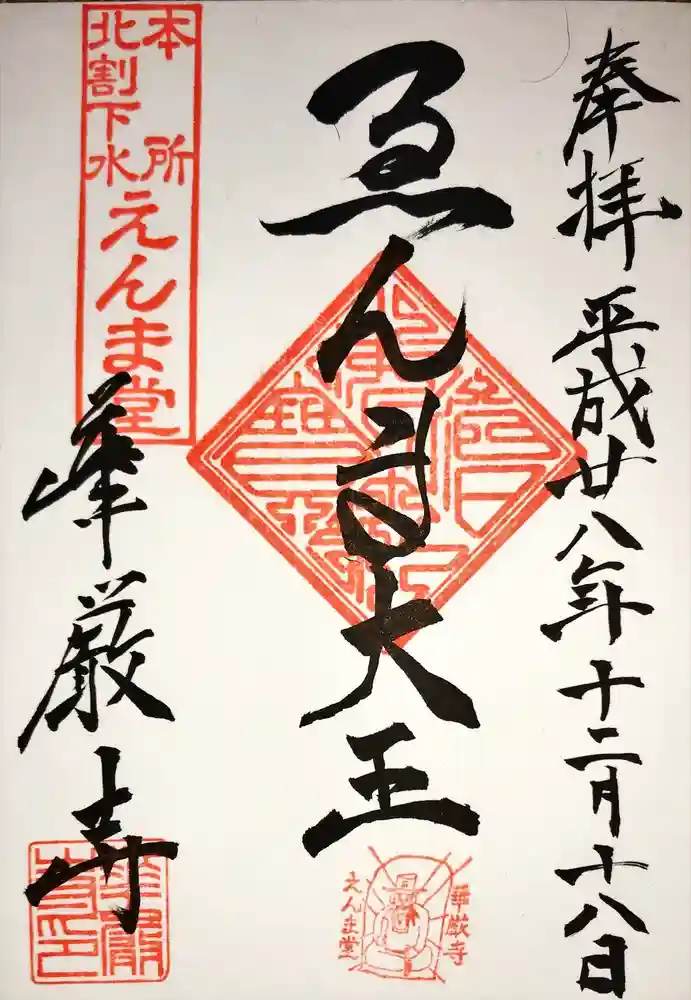 奉拝 平成廿八年十二月十八日
ゑんま大王
華厳寺
えんま堂
本所
北割下水
えんま堂
華厳寺
華嚴
寺印